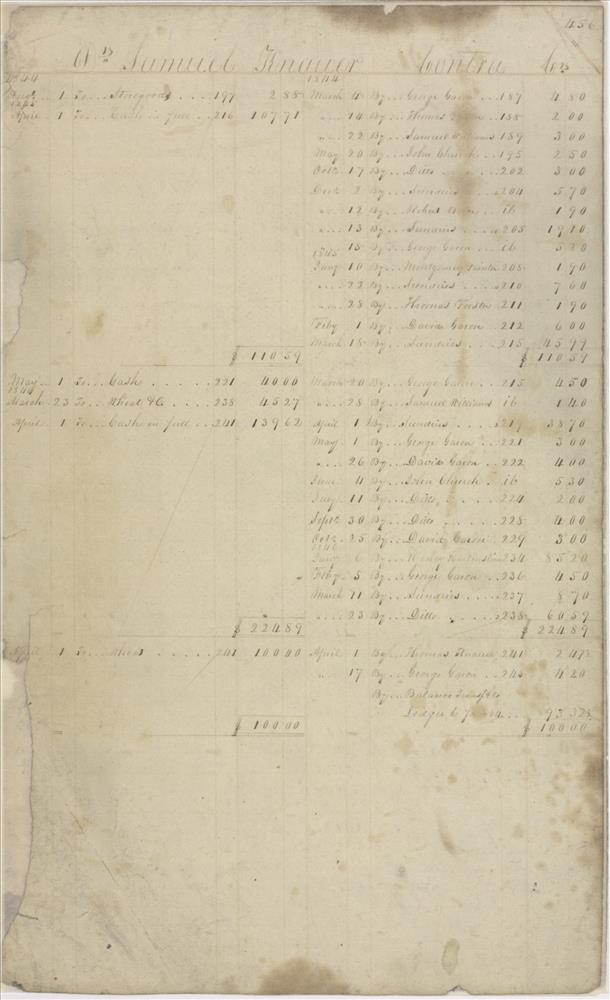 456
Drs Samuel Knauer Contra Crs
1844 1844
1 To Storegoods 197 2 88 March 4 By George Caron 187 4 80
1845
April 1 To Cash in full 216 107 71 " 14 By Thomas 188 2 00
" 22 By Samuel Williams 189 3 00
May 20 By John Church 195 2 50
Octr 17 By Ditto 202 3 00
Decr 2 By Sundries 204 5 70
" 12 By ib 1 90
" 13 By Sundries 205 19 10
" 18 By George Caron ib
1845
Jany 10 By Montgomery 208 1 90
" 22 By Sundries 210 7 60
" 28 By Thomas Foster 211 1 90
Feby 1 By David Caron 212 6 00
March 18 By Sundries 215 45 99
$ 110 59 $ 110 59
May 1 To Cash 221 40 00 March 20 By George Caron 215 4 50
March 23 To Wheat &c 238 45 27 " 28 By Samuel Williams ib 1 40
April 1 To Cash in full 241 139 62 April 1 By Sundries 219 38 70
May 1 By George Caron 221 3 00
" 26 By David Caron 222 4 00
June 4 By John Church ib 5 30
July 11 By Ditto 224 2 00
Septr 30 By Ditto 228 4 00
Octr 25 By David 229 3 00
1846
Jany 6 By 234 85 20
Feby 5 By George Caron 236 4 50
March 11 By Sundries 237 8 70
" 23 By Ditto 238 60 59
$ 224 89 $ 224 89
April 1 To Wheat 241 100 00 April 1 By Thomas Knauer 241 2 47½
" 17 By George Caron 243 4 20
By Balance Transf to
Ledger 6 93 32½
$ 100 00 $ 100 00